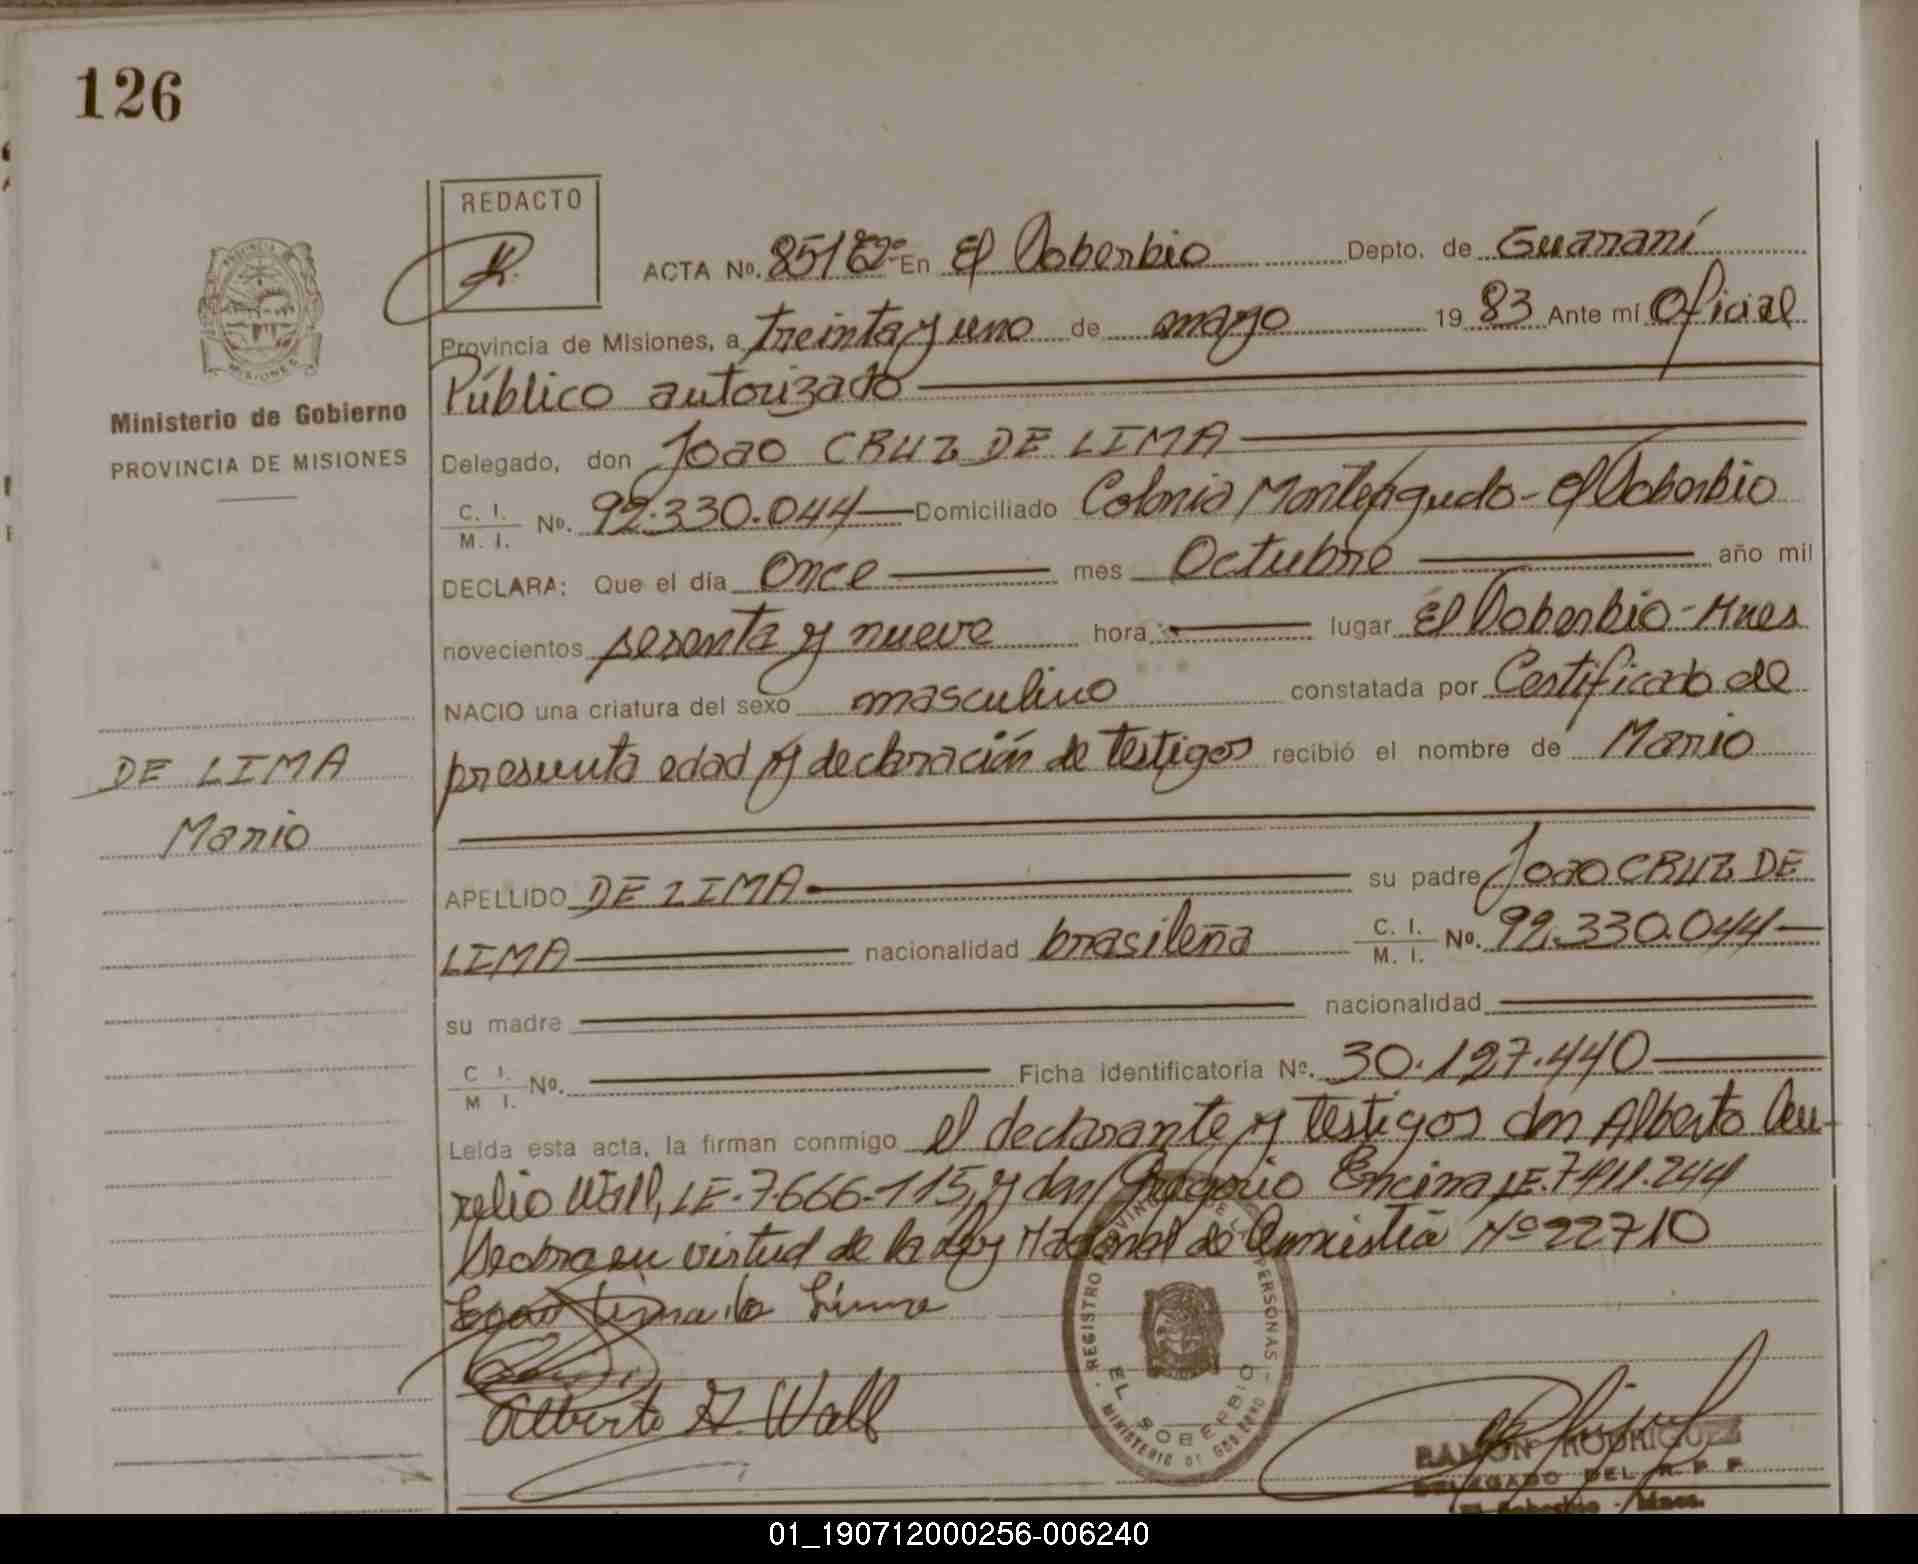 126
REDACTO
ACTA No. 851 Tº 2º En El Soberbio Depto. de Guaraní
Provincia de Misiones, a treinta y uno de mayo 1983 Ante mí Oficial
Público autorizado
Ministerio de Gobierno
PROVINCIA DE MISIONES
Delegado, don Joao CRUZ DE LIMA
C. I. M. I. No. 92.330.044 Domiciliado Colonia Monteagudo - El Soberbio
DECLARA: Que el día Once mes Octubre año mil
novecientos sesenta y nueve hora lugar El Soberbio - Mnes
NACIO una criatura del sexo masculino constatada por Certificado de
presunta edad y declaración de testigos recibió el nombre de Mario
DE LIMA
Mario
APELLIDO DE LIMA su padre Joao CRUZ DE
LIMA nacionalidad brasileña C. I. M. I. No. 92.330.044
su madre nacionalidad
C. I. M. I. No. Ficha identificatoria No. 30.127.440
Leída esta acta, la firman conmigo el declarante y testigos don Alberto Au-
relio Wall, LE. 7.666.115, y don Gregorio Encina LE.
Se obra en virtud de la Ley Nacional de Amnistía Nº 22710
Alberto A. Wall
REGISTRO PROVINCIAL DE PERSONAS
EL SOBERBIO
MINISTERIO DE GOBIERNO
RAMON RODRIGUEZ
DELEGADO DEL R. P. P.
El Soberbio - Mnes.
01_190712000256-006240